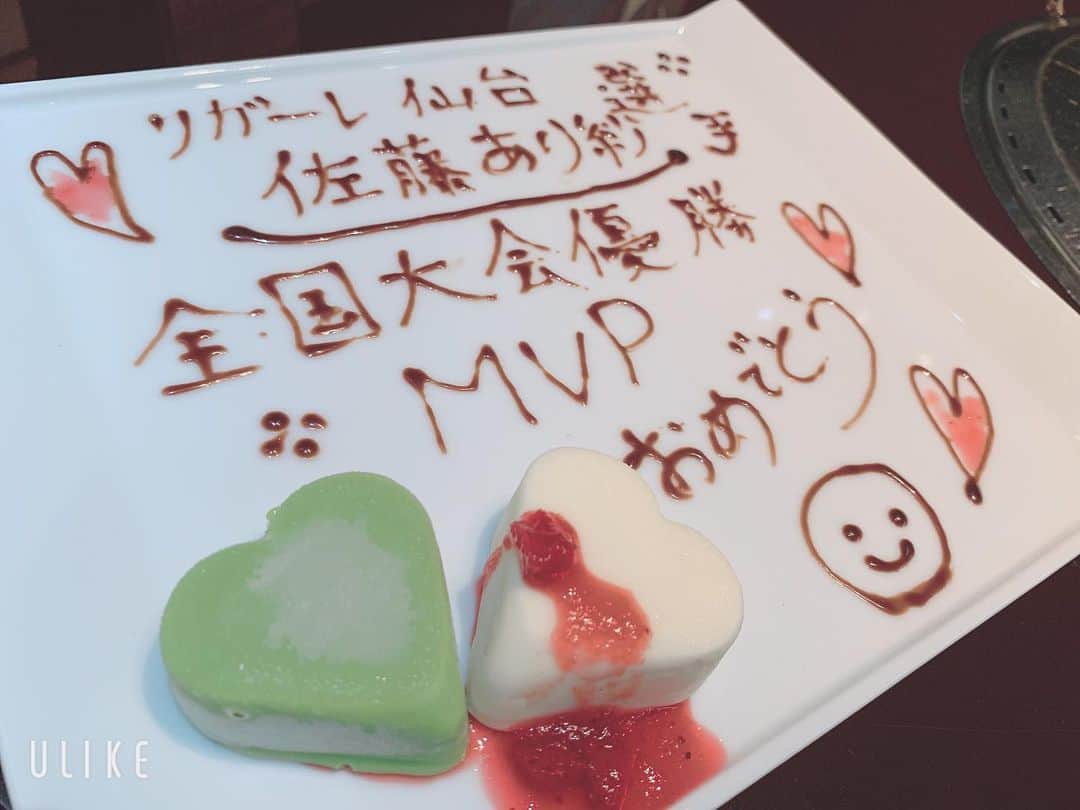 リガーレ 仙台
佐藤あり彩選手
全国大会優勝
MVP
おめでとう
ULIKE